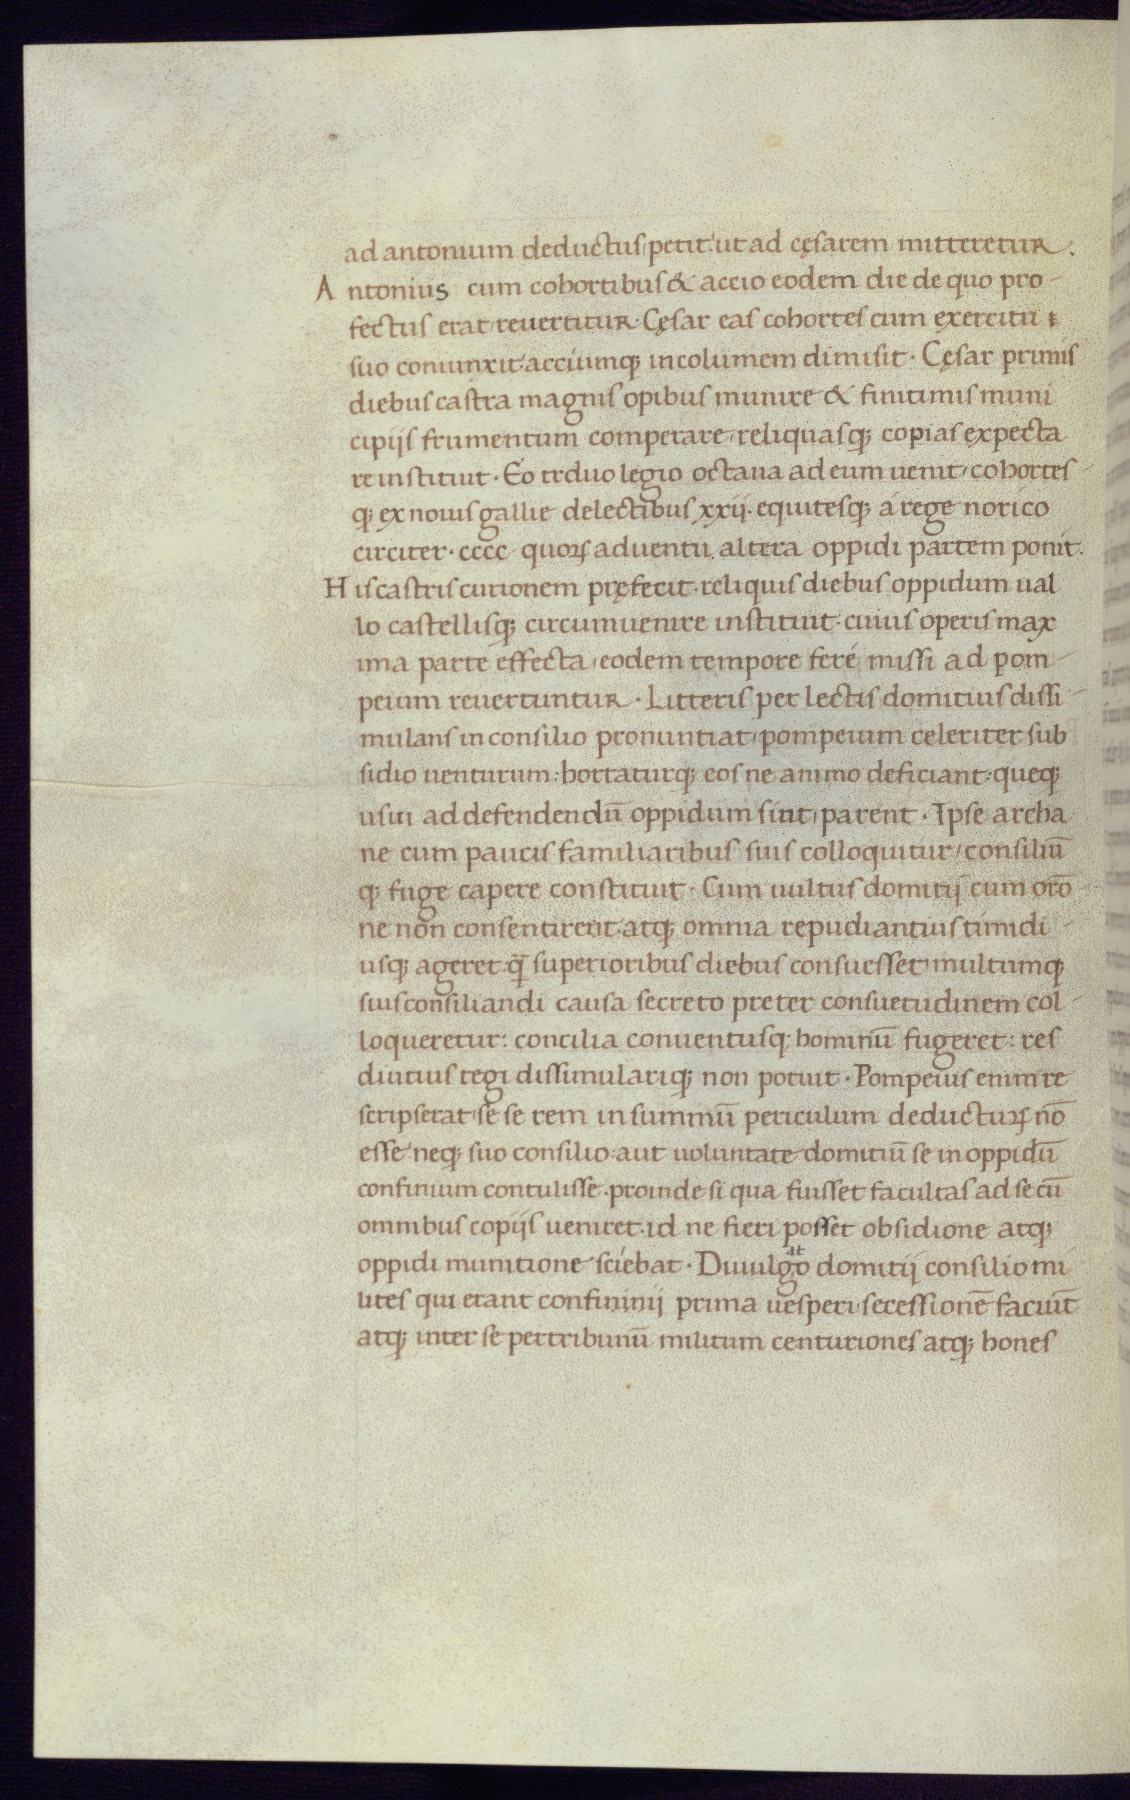 ad antonium deductus petit ut ad cęsarem mitteretur.
Antonius cum cohortibus & accio eodem die de quo pro-
fectus erat revertitur. Cęsar eas cohortes cum exercitu
suo coniunxit acciumq; incolumem dimisit. Cęsar primis
diebus castra magnis opibus munire & finitimis muni
cipijs frumentum comperare, reliquasq; copias expecta
re instituit. Eo trduo legio octava ad eum venit, cohortes-
q; ex novis gallie delectibus xxij. equitesq; á rege norico
circiter. cccc quoꝝ adventu altera oppidi partem ponit.
His castris curionem pręfecit. reliquis diebus oppidum val
lo castellisq; circumvenire instituit. cuius operis max
ima parte effecta, eodem tempore feré missi ad pom-
peium revertuntur. Litteris per lectis domitius dissi-
mulans in consilio pronuntiat, pompeium celeriter sub
sidio venturum: hortaturq; eos ne animo deficiant: queq;
usui ad defendendū oppidum sint, parent. Ipse archa
ne cum paucis familiaribus suis colloquitur, consiliū
q; fuge capere constituit. Cum vultus domitij cum orō
ne non consentirent. atq; omnia repudiantius timidi-
usq; ageret. q̄ superioribus diebus consuesset, multumq;
suis consiliandi causa secreto preter consuetudinem col-
loqueretur: concilia conventusq; hominū fugeret: res
diutius tegi dissimulariq; non potuit. Pompeius enim re
scripserat, se se rem in summū periculum deductuꝝ nō
esse neq; suo consilio aut voluntate domitiū se in oppidū
confinium contulisse. proinde si qua fuisset facultas ad se cū
omnibus copijs veniret. id ne fieri posset obsidione atq;
oppidi munitione sciebat. Divulgato domitij consilio mi
lites qui erant confininij prima vesperi, secessionē faciūt
atq; inter se per tribunū militum centuriones atq; hones